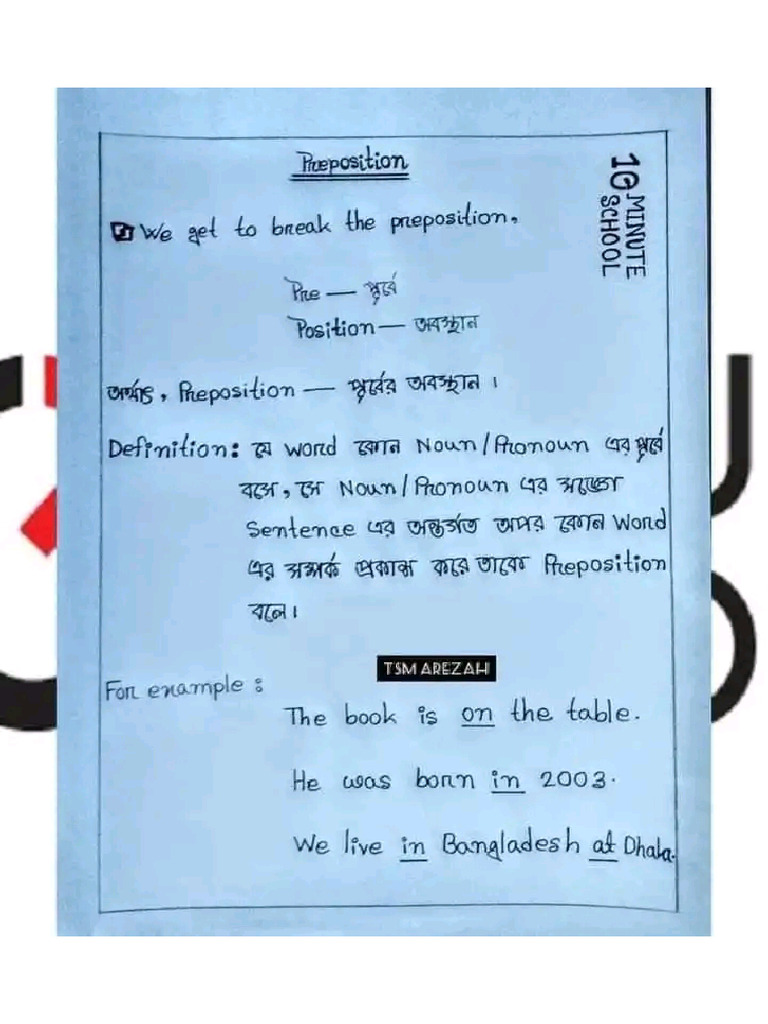 Preposition
We get to break the preposition,
Pre — পূর্বে
Position — অবস্থান
অর্থাৎ, Preposition — পূর্বের অবস্থান ।
Definition: যে word কোন Noun/Pronoun এর পূর্বে
বসে, সে Noun/Pronoun এর সঙ্গে
Sentence এর অন্তর্গত অপর কোন Word
এর সম্পর্ক প্রকাশ করে তাকে Preposition
বলে।
For example :
The book is on the table.
He was born in 2003.
We live in Bangladesh at Dhaka.
10 MINUTE
SCHOOL
TSM AREZAH